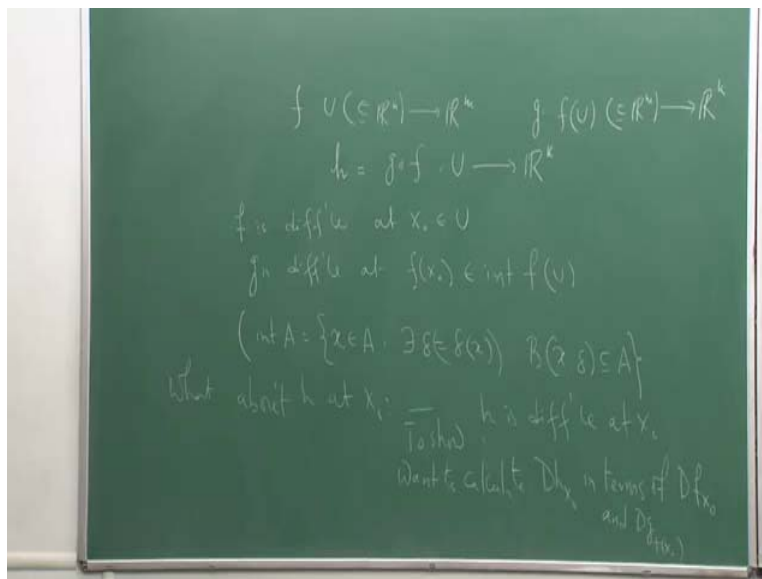 f U (⊆ ℝⁿ) → ℝᵐ   g f(U) (⊆ ℝᵐ) → ℝᵏ
h = g∘f . U → ℝᵏ
f is diff'ble at x₀ ∈ U
g is diff'ble at f(x₀) ∈ int f(U)
(int A = {x ∈ A . ∃ δ(= δ(x)) B(x δ) ⊆ A}
What about h at x₀.
To show h is diff'ble at x₀
Want to calculate Dh_{x₀} in terms of Df_{x₀}
and Dg_{f(x₀)}